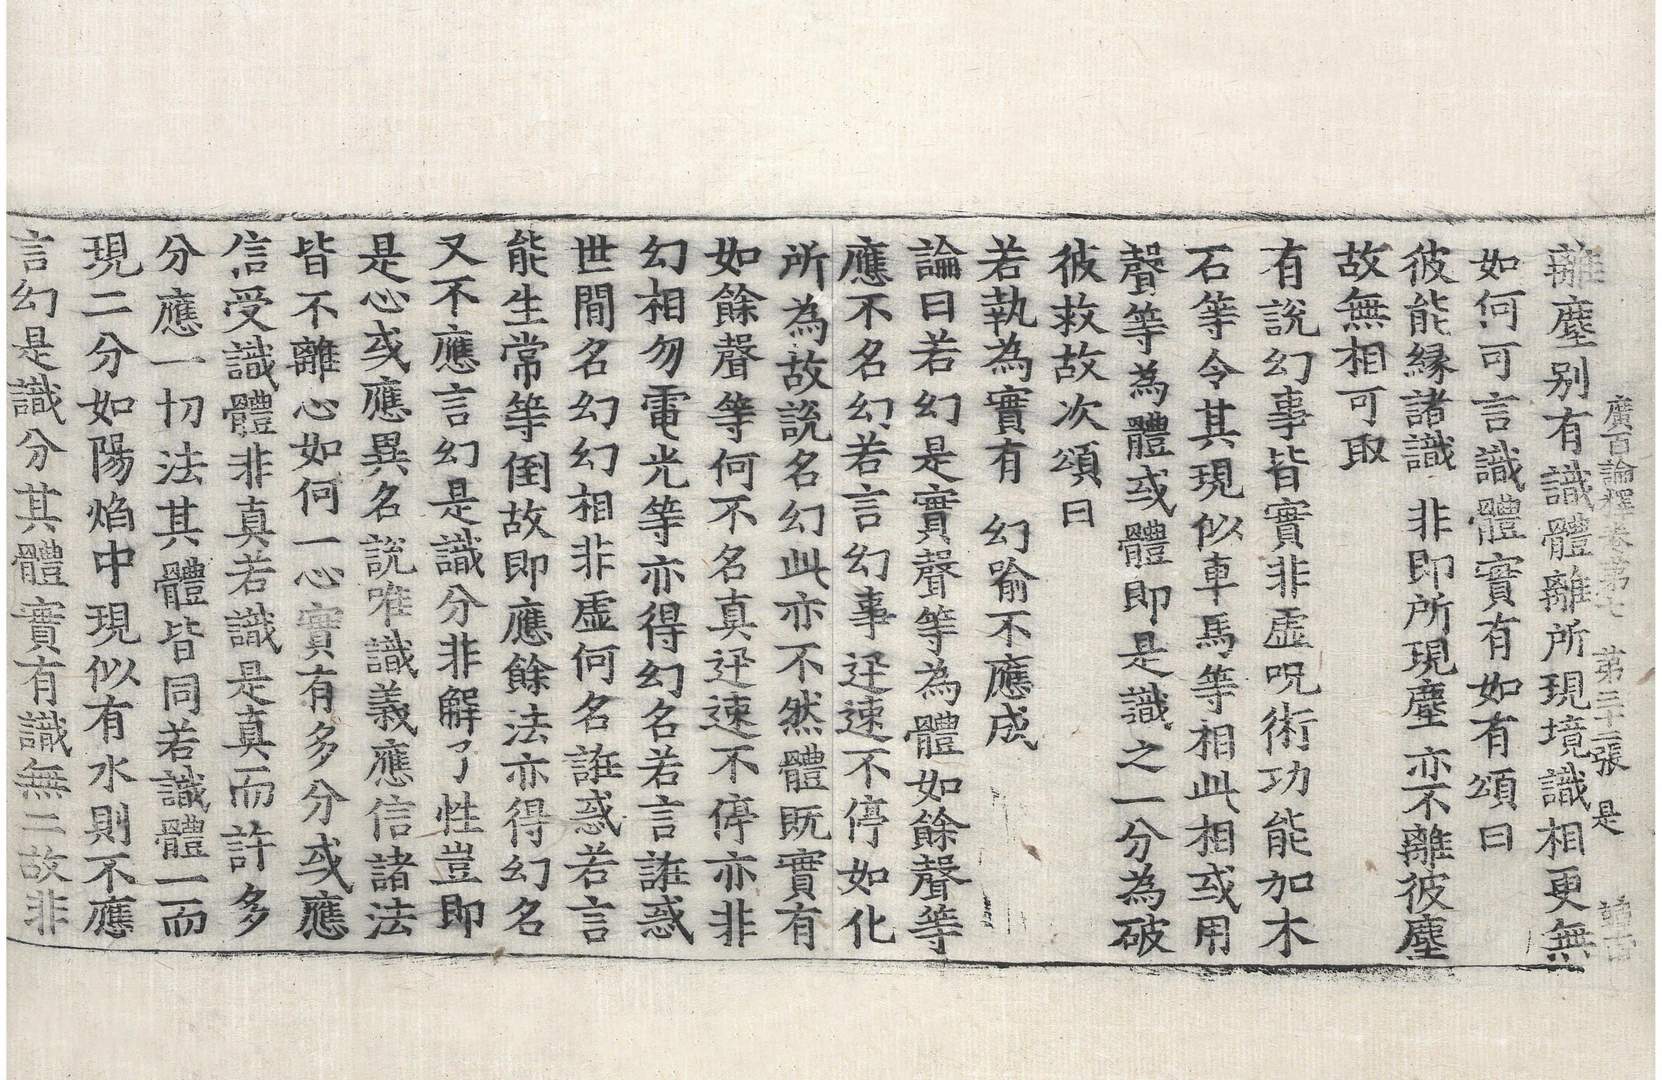 廣百論釋卷第七 第三十二張 是
離塵別有識體離所現境識相更無
如何可言識體實有如有頌曰
彼能緣諸識 非即所現塵 亦不離彼塵
故無相可取
有說幻事皆實非虛呪術功能加木
石等令其現似車馬等相此相或用
聲等為體或體即是識之一分為破
彼救故次頌曰
若執為實有 幻喻不應成
論曰若幻是實聲等為體如餘聲等
應不名幻若言幻事迅速不停如化
所為故說名幻此亦不然體既實有
如餘聲等何不名真迅速不停亦非
幻相勿電光等亦得幻名若言誑惑
世間名幻幻相非虛何名誑惑若言
能生常等倒故即應餘法亦得幻名
又不應言幻是識分非解了性豈即
是心或應異名說唯識義應信諸法
皆不離心如何一心實有多分或應
信受識體非真若識是真而許多
分應一切法其體皆同若識體一而
現二分如陽焰中現似有水則不應
言幻是識分其體實有識無二故非